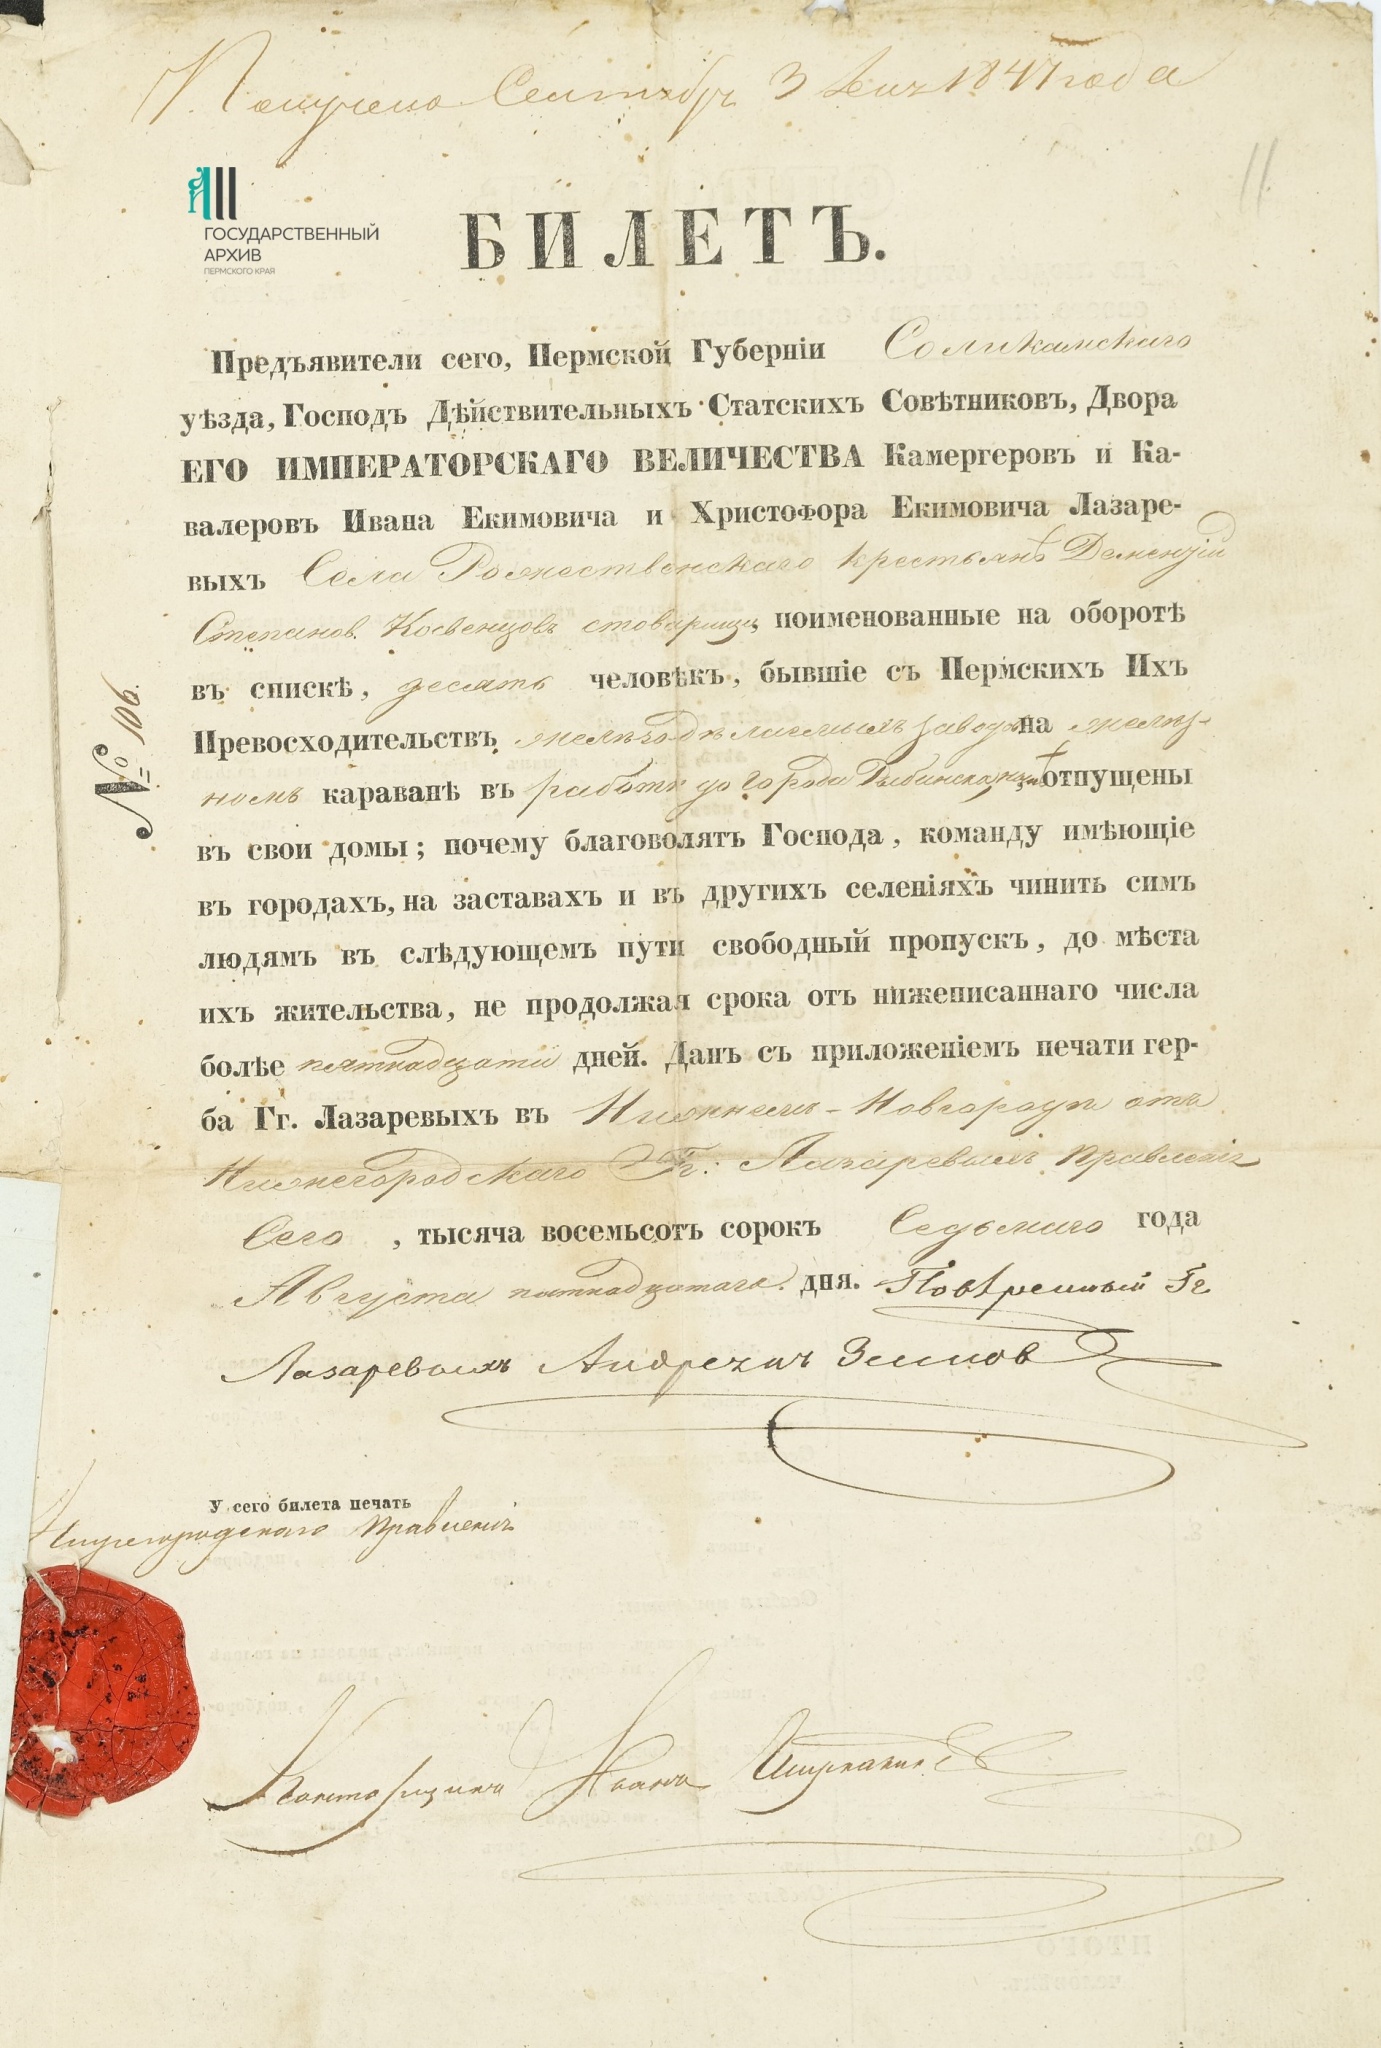 Получено Сентября 3 дня 1847 года
11.
ГОСУДАРСТВЕННЫЙ
АРХИВ
ПЕРМСКОГО КРАЯ
БИЛЕТЪ.
Предъявители сего, Пермской Губерніи Соликамскаго
уѣзда, Господъ Дѣйствительныхъ Статскихъ Совѣтниковъ, Двора
ЕГО ИМПЕРАТОРСКАГО ВЕЛИЧЕСТВА Камергеровъ и Ка-
валеровъ Ивана Екимовича и Христофора Екимовича Лазаре-
выхъ Села Рожественскаго крестьянъ Дементій
Степанов. Косвенцовъ стоварищи, поименованные на оборотѣ
въ спискѣ, десять человѣкъ, бывшіе съ Пермскихъ Ихъ
Превосходительствъ, заводовъ на желѣз-
номъ караванѣ въ работѣ до города Рыбинска отпущены
въ свои домы; почему благоволятъ Господа, команду имѣющіе
въ городахъ, на заставахъ и въ другихъ селеніяхъ чинить симъ
людямъ въ слѣдующемъ пути свободный пропускъ, до мѣста
ихъ жительства, не продолжая срока отъ нижеписаннаго числа
болѣе пятнадцати дней. Данъ съ приложеніемъ печати гер-
ба Гг. Лазаревыхъ въ Нижнемъ-Новгородѣ отъ
Нижегородскаго Гг: Лазаревыхъ Правленія
Сего, тысяча восемьсотъ сорокъ Седьмаго года
Августа пятнадцатаго. дня. Повѣренный Гг
Лазаревыхъ Зеинов
№ 106.
У сего билета печать
Нижегородскаго Правленія
Конторщикъ Иванъ